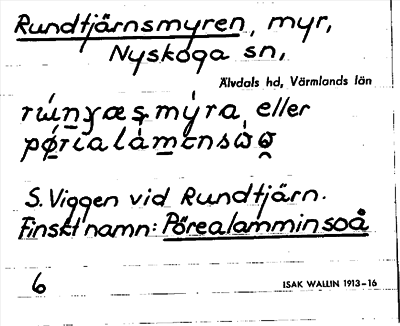 Rundtjärnsmyren, myr,
Nyskoga sn,
Älvdals hd, Värmlands län
eller
S. Viggen vid Rundtjärn.
Finskt namn: Pörealamminsoå
6
ISAK WALLIN 1913-16